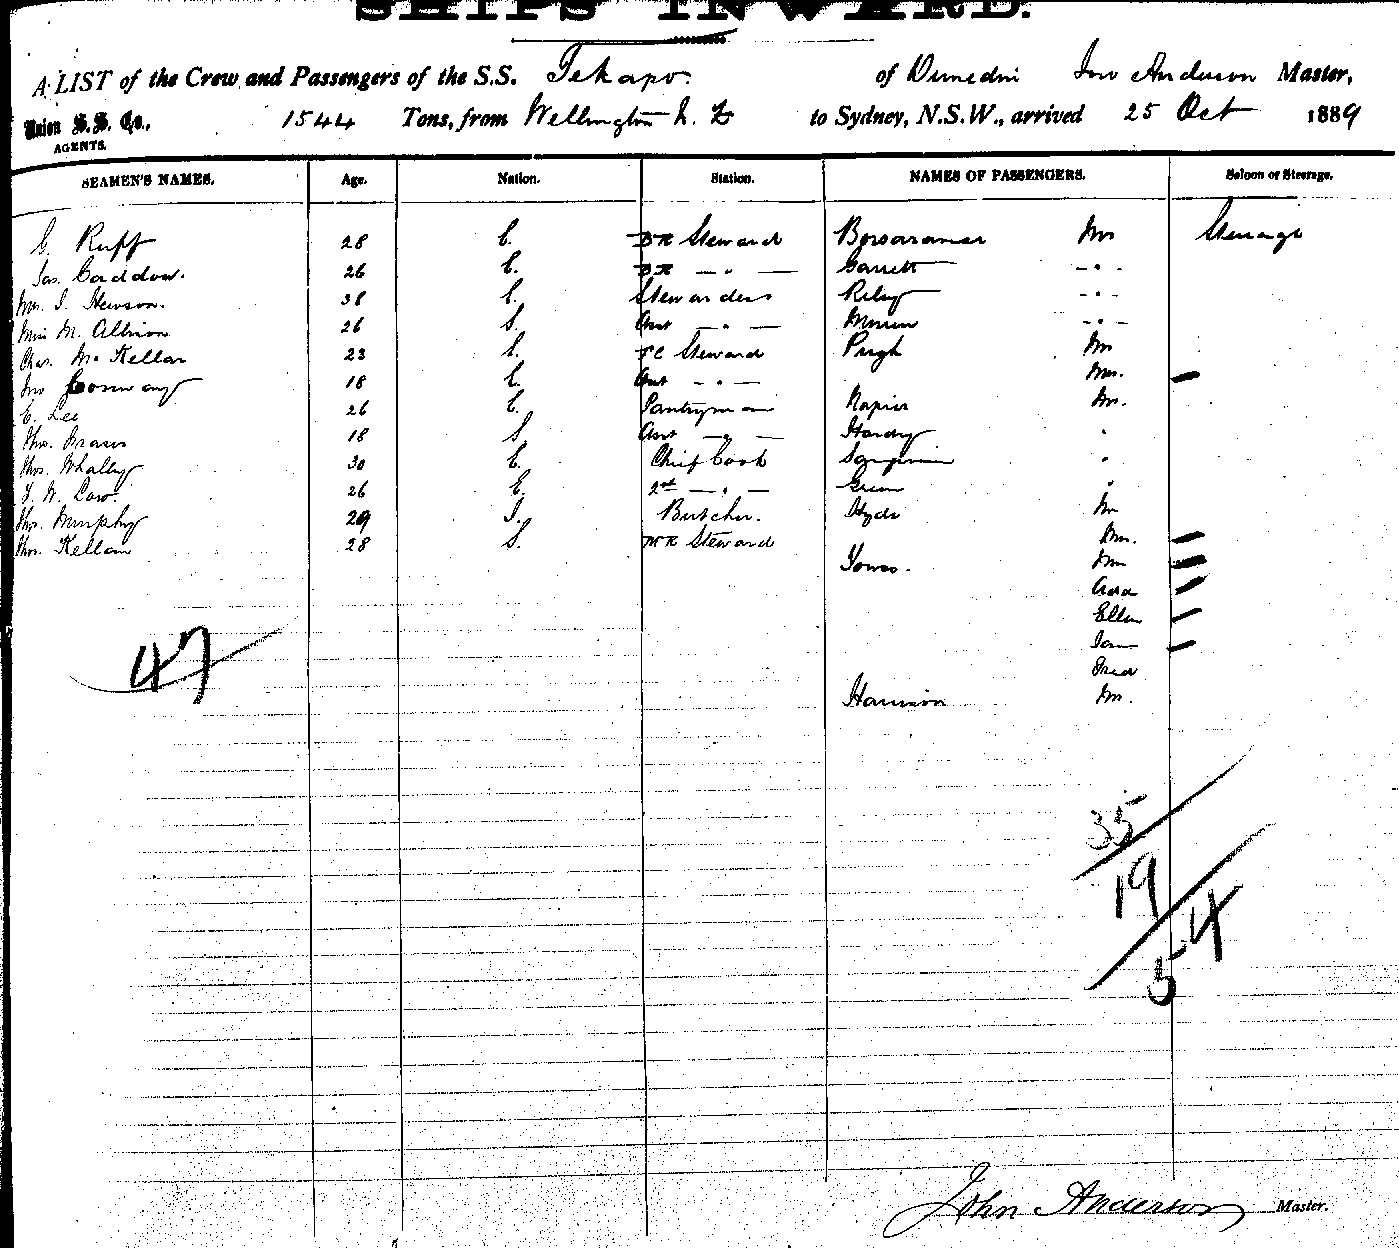 SHIPS INWARD.
A LIST of the Crew and Passengers of the S.S. Tekapo. of Dunedin Jno Anderson Master,
Union S.S. Co., AGENTS. 1544 Tons, from Wellington N. Z to Sydney, N.S.W., arrived 25 Oct 1889
SEAMEN'S NAMES. Age. Nation. Station. NAMES OF PASSENGERS. Saloon or Steerage.
G. Ruff 28 E. BR Steward Mrs Steerage
Jas. Caddow. 26 E. BR — " — Garrett — " —
Mrs. I. Hewson. 38 E. Stewardess Riley — " —
Miss M. Albion 26 S. Asst — " — — " —
Chas. McKellar 23 E. FC Steward Pugh Mr
Jno 18 E. Asst — " — Mrs. —
E. Lee 26 E. Pantryman Napier Mr.
Thos. 18 S Asst — " — Hardy "
Thos. Whalley 30 E. Chief Cook "
F. W. Law. 26 E. 2nd — " — Green "
Thos. Murphy 29 I. Butcher. Hyde Mr
Thos. Kellam 28 S. MR Steward Mrs. —
Mrs —
Ada —
Ellen —
—
Fred
Harrison Mr.
47
35
19
54
John Anderson Master.